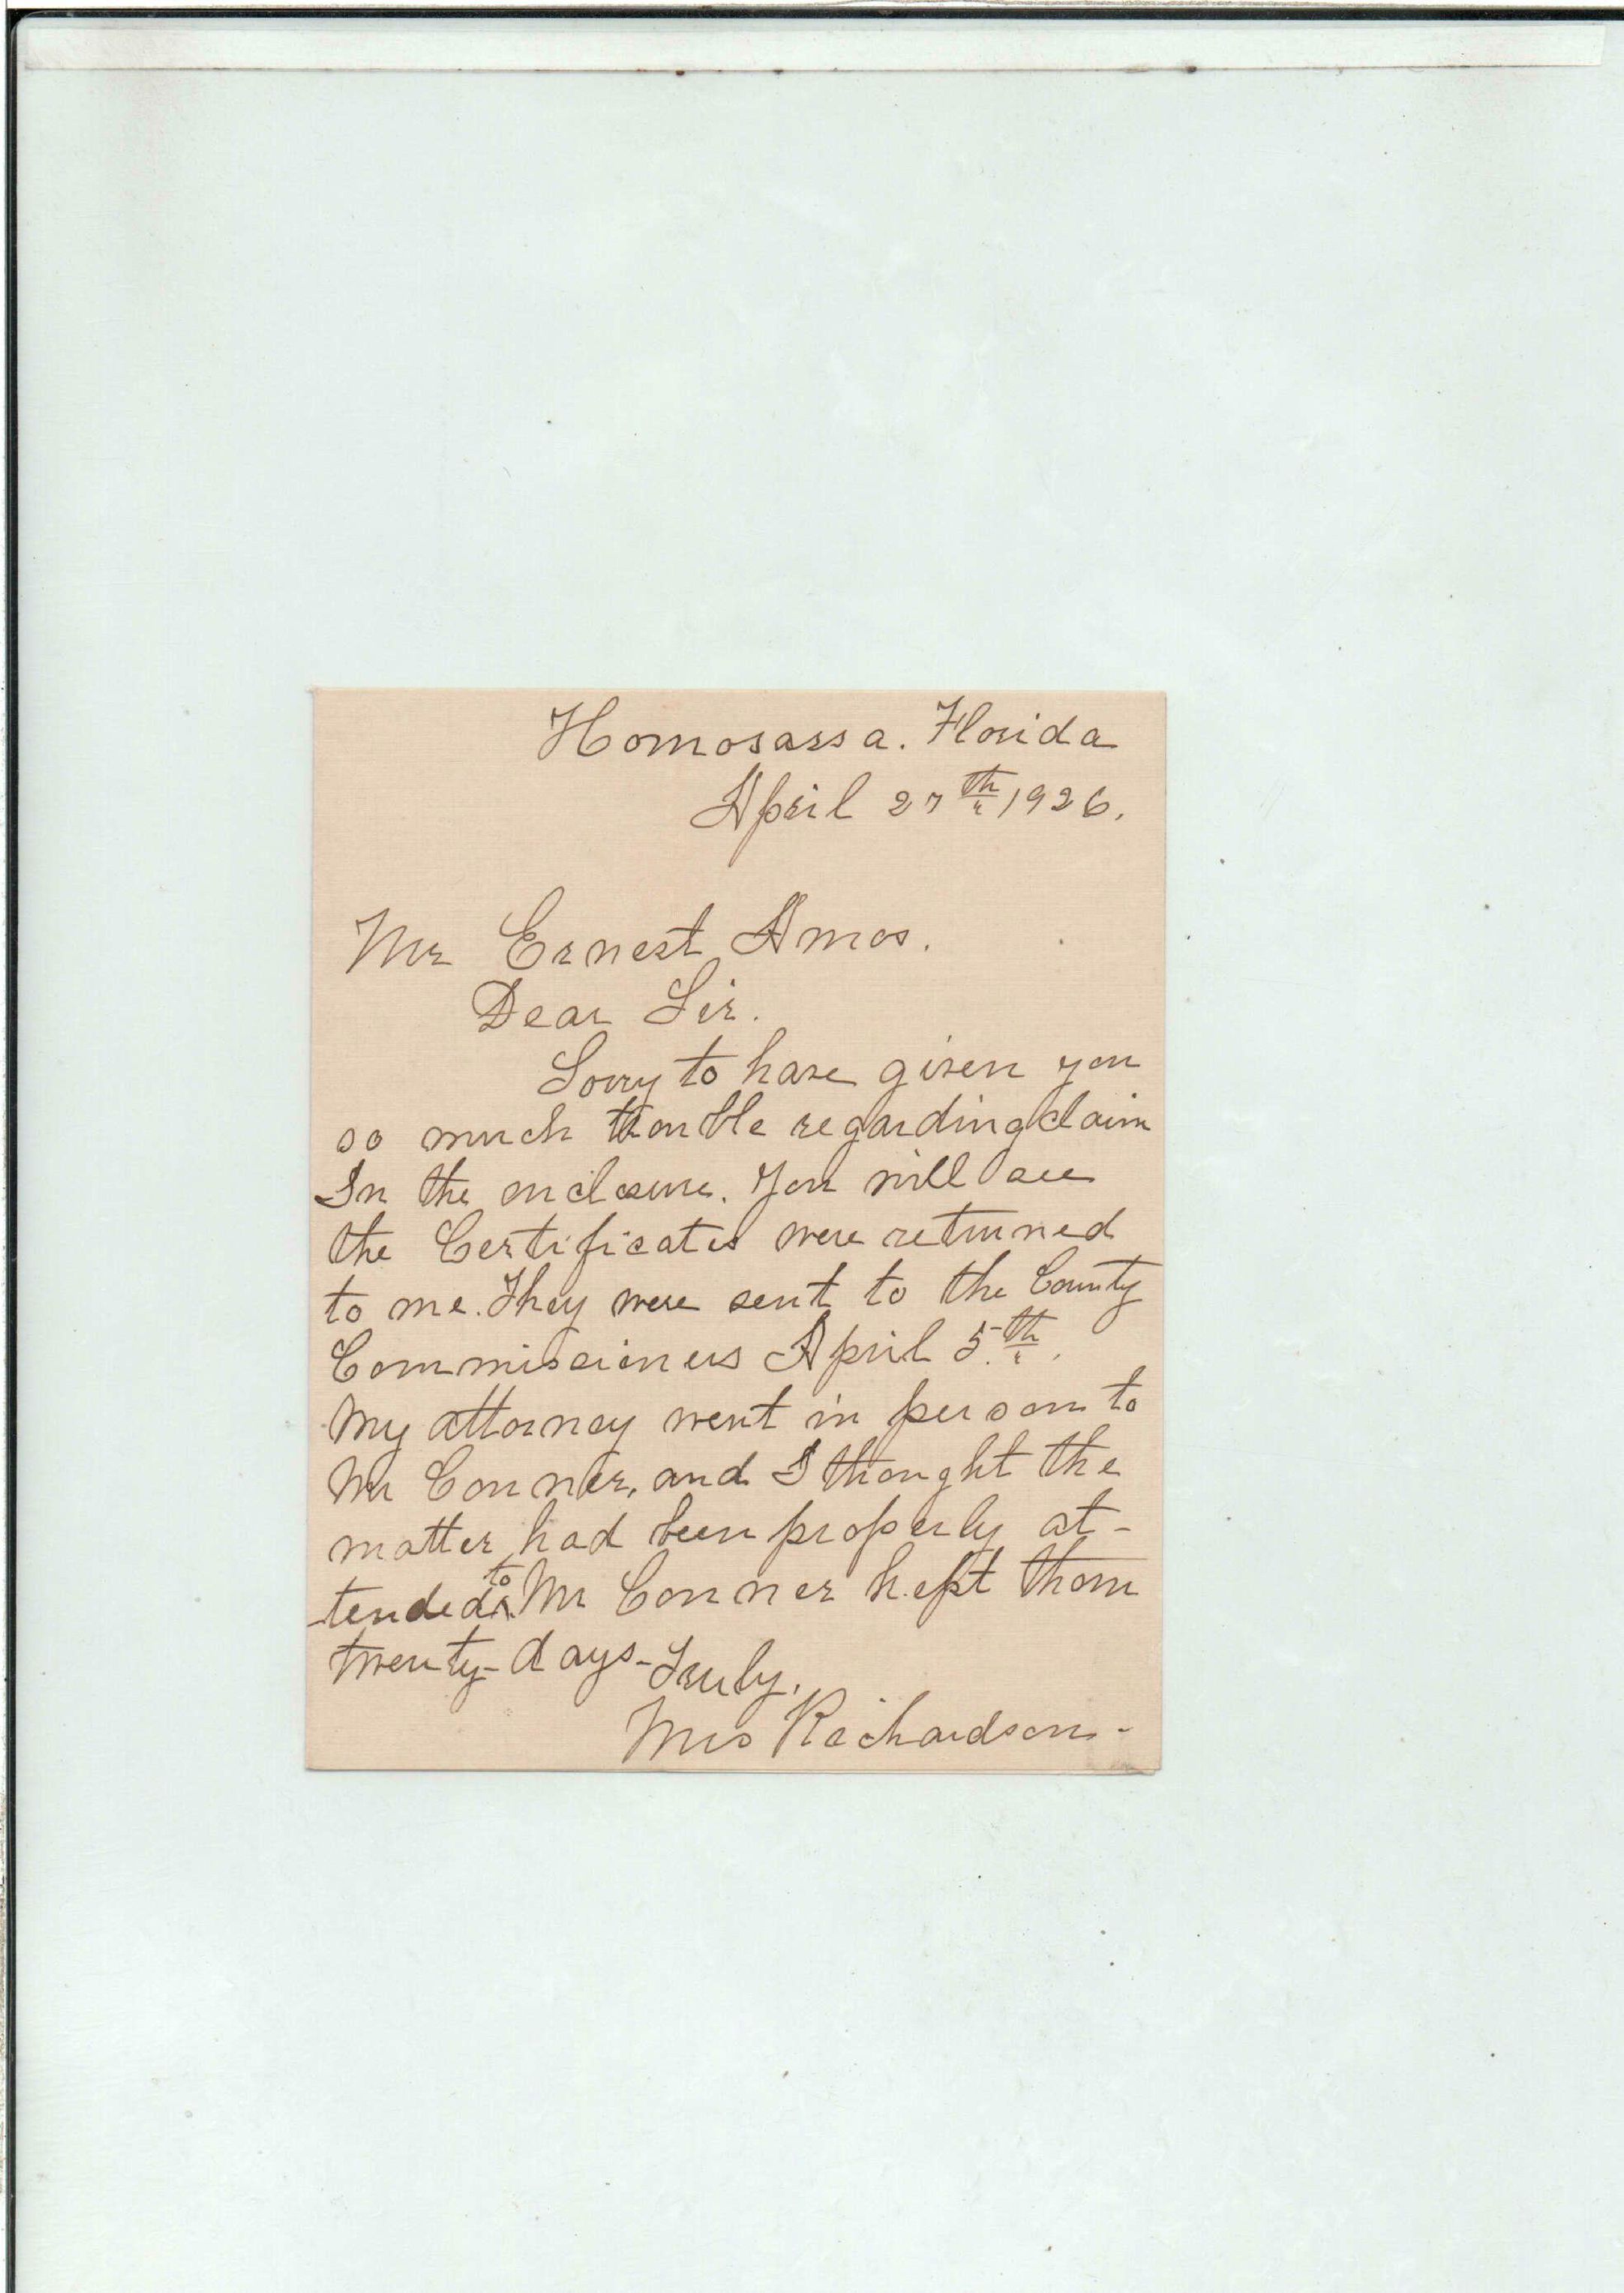 Homosassa. Florida
April 27th 1926.
Mr Ernest Amos.
Dear Sir.
Sorry to have given you
so much trouble regarding claim
In the enclosure. You will see
the Certificates were returned
to me. They were sent to the County
Commissioners April 5th.
My attorney went in person to
Mr Conner, and I thought the
matter had been properly at-
tended to. Mr Conner kept them
twenty-days-Truly,
Mrs Richardson-